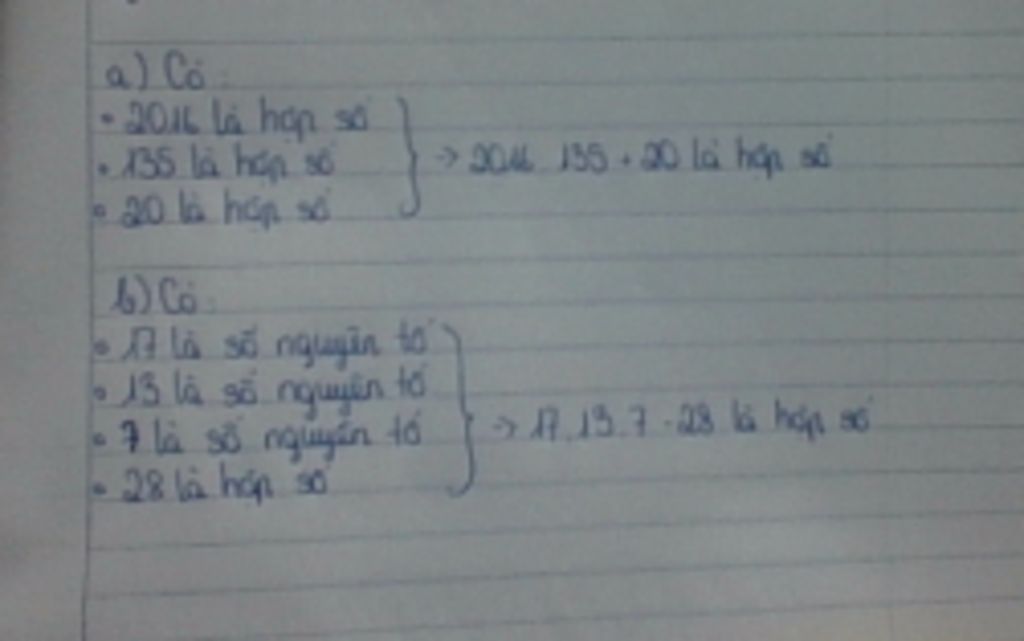 a) Có:
• 2016 là hợp số
• 135 là hợp số → 2016. 135 + 20 là hợp số
• 20 là hợp số
b) Có:
• 17 là số nguyên tố
• 13 là số nguyên tố
• 7 là số nguyên tố → 17.13.7 - 28 là hợp số
• 28 là hợp số